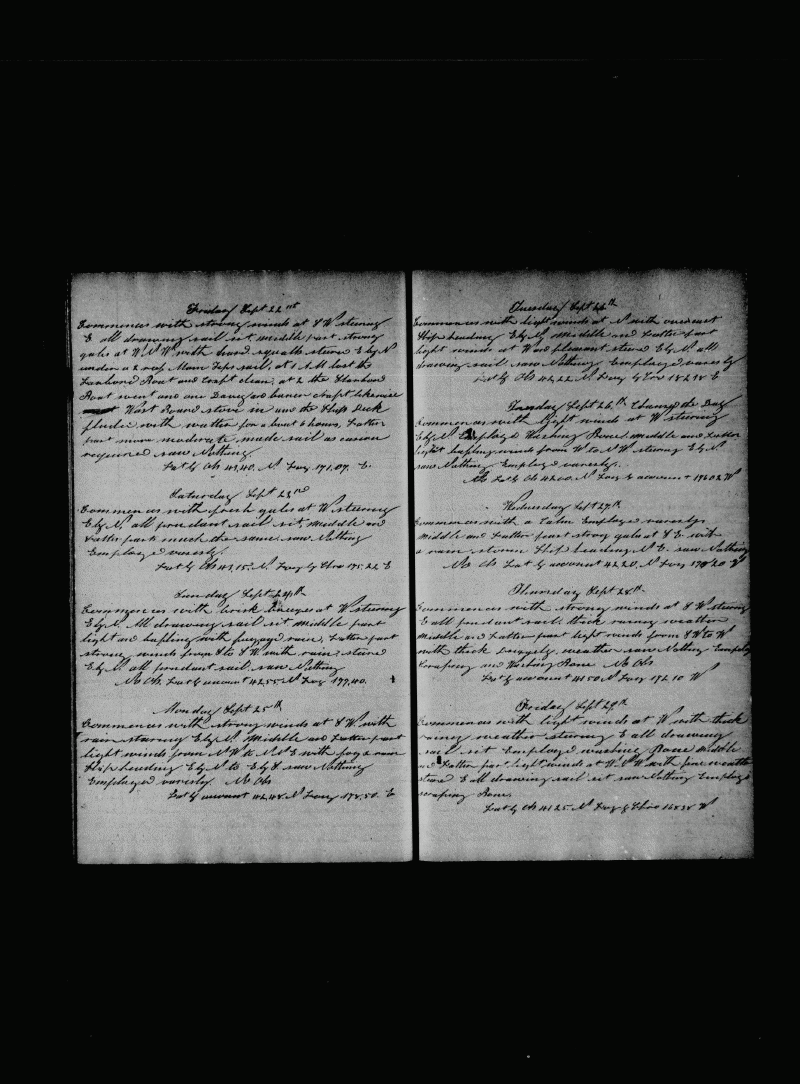 Friday Sept 22nd
Commences with strong winds at S W steering
E all drawing sail set middle part strong
gales at W N W with hard squalls steerd E by N
under a 2 reef Main Topsail, at 1 A M lost the
Larbord Boat and craft clean, at 2 the Starbord
Boat went and one Davey and
Wast Board stove in and the Ships Deck
with watter for about 6 hours, Latter
part more moderate made sail as
required saw Nothing
Lat by Ob 43,40. N Long 171,07. E.
Saturday Sept 23rd
Commences with fresh gales at W steering
E by N. all prudant sail set, middle and
Latter part much the same, saw Nothing
Employed varesly.
Lat by Ob 43,15. N. Long by Chro 175.22 E
Sunday Sept 24th
Commences with brisk breezes at W steering
E by N. All drawing sail set middle part
light and bafling with foggy rain, Latter part
strong winds from S to S W with rain, steerd
E by N. all prudant sail saw Nothing
No Ob. Lat by account 42.55 N Long 177,40.
Monday Sept 25th
Commences with strong winds at S W. with
rain stearing E by N. Middle and Latter part
light winds from N W to N & E with fog & rain
Ship heading E by N to E by S saw Nothing
Employed varesly No Ob
Lat by account 42,48. N Long 178,50. E
Tuesday Sept 26th
Commences with light winds at N with overcast
Ship heading E by N Middle and Latter part
light winds at West pleasant steerd E by N all
drawing sail saw Nothing Employed varesly
Lat by Ob 42,22 N Long by Chro 182,98 E
Tuesday Sept 26th Changed the Day
Commences with light winds at W steering
E by N Employed Washing Bone Middle and Latter
light bafling winds from W to N W steering E by N.
saw Nothing Employed varesly.
No Lat by Ob 42,00. N Long by account
Wednesday Sept 27th
Commences with a Calm Employed varesly
Middle and Latter part strong gales at S E with
a rain storm Ship heading N E. saw Nothing
No Ob Lat by account 42.20, N Long 20 W
Thursday Sept 28th
Commences with strong winds at S W steering
E all prudant sail thick rainey weather
Middle and Latter part light winds from S W to W
with thick weather saw Nothing Employed
Scraping and Washing Bone No Ob.
Lat by account 41 50 N Long 172 10 W
Friday Sept 29th
Commences with light winds at W with thick
rainey weather steering E all drawing
sail set Employed washing Bone Middle
and Latter part light winds at W S W with fine weather
steerd E all drawing sail set saw Nothing Employed
scraping Bone.
Lat by Ob 41 25. N Long by Chro 168 38 W